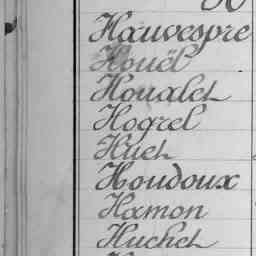 Hauvespre
Houël
Houalet
Hogrel
Huet
Houdoux
Hamon
Huchet